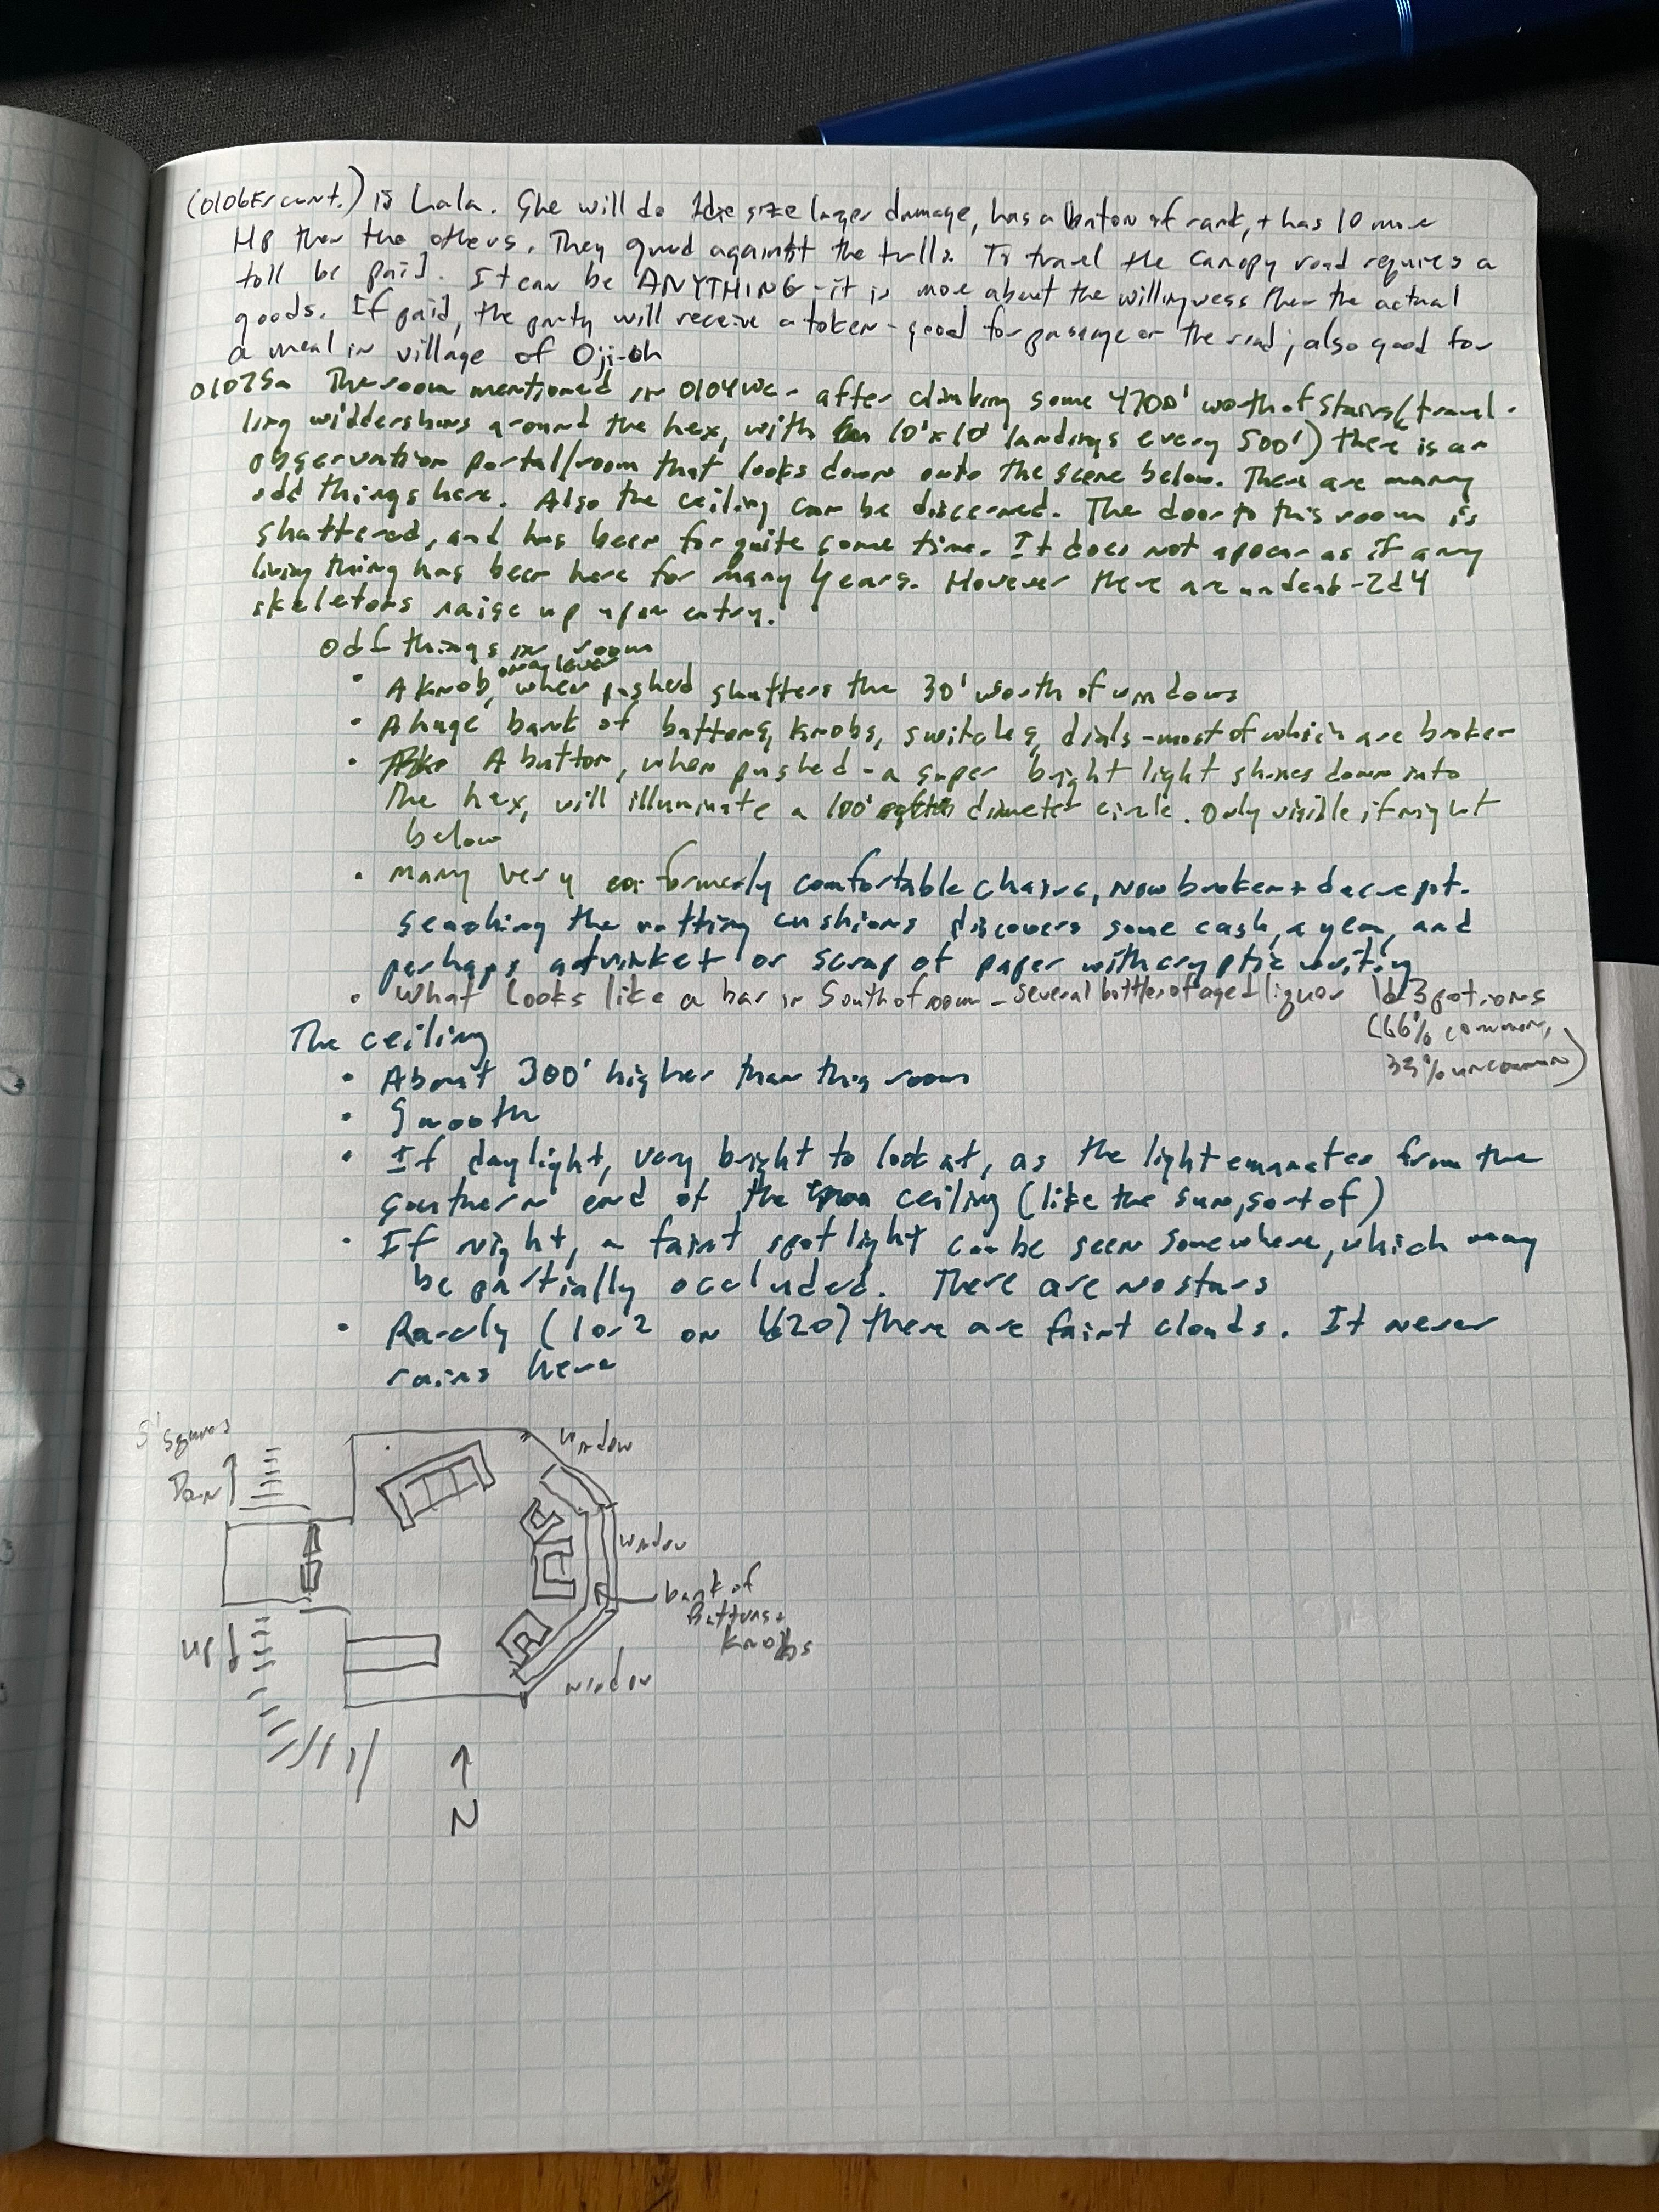 (0106Er cont.) is Lala. She will do 1die size larger damage, has a baton of rank, + has 10 more
HP than the others. They guard against the trolls. To travel the canopy road requires a
toll be paid. It can be ANYTHING - it is more about the willingness than the actual
goods. If paid, the party will receive a token - good for passage on the road; also good for
a meal in village of Oji-oh
0107Sa The room mentioned in 0104We - after climbing some 4700' worth of stairs (travel-
ling widdershins around the hex, with 10'x10' landings every 500') there is an
observation portal/room that looks down onto the scene below. There are many
odd things here. Also the ceiling can be discerned. The door to this room is
shattered, and has been for quite some time. It does not appear as if any
living thing has been here for many years. However there are undead - 2d4
skeletons raise up upon entry.
Odd things in room
• A knob, on a lever, when pushed shutters the 30' worth of windows
• A huge bank of buttons, knobs, switches, dials - most of which are broken
• A button, when pushed - a super bright light shines down into
the hex, will illuminate a 100' diameter circle. Only visible if night
below
• Many very formerly comfortable chairs, now broken + decrepit.
Searching the rotting cushions discovers some cash, a gem, and
perhaps a trinket or scrap of paper with cryptic writing
• What looks like a bar in South of room - several bottles of aged liquor 1d3 potions
(66% common,
33% uncommon)
The ceiling
• About 300' higher than this room
• Smooth
• If daylight, very bright to look at, as the light emanates from the
southern end of the ceiling (like the sun, sort of)
• If night, a faint spotlight can be seen somewhere, which may
be partially occluded. There are no stars
• Rarely (1 or 2 on 1d20) there are faint clouds. It never
rains here
5' squares
window
Down
window
bank of
Buttons +
Knobs
UP
window
N